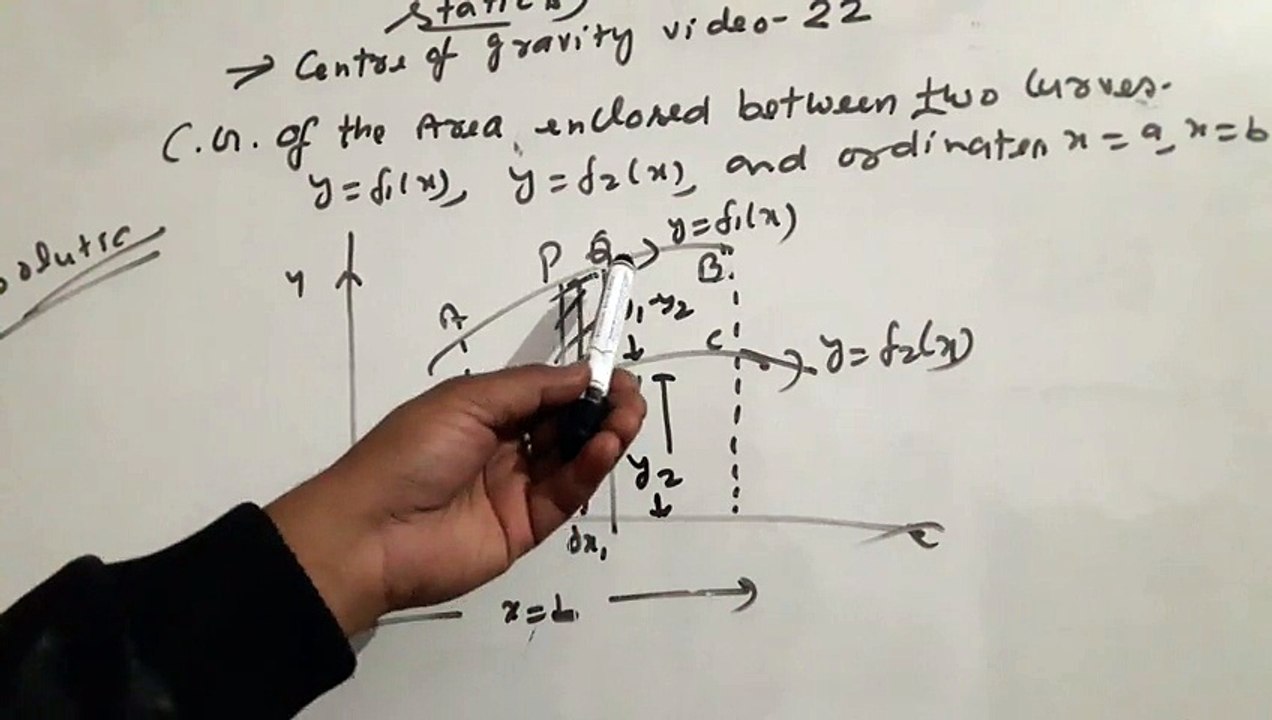 statics
→ Centre of gravity video-22
C.G. of the Area, enclosed between two curves.
y = f₁(x), y = f₂(x), and ordinates x = a, x = b
solutic
y
P Q y = f₁(x)
A B
y₂
C y = f₂(x)
y₂
dx,
x = b